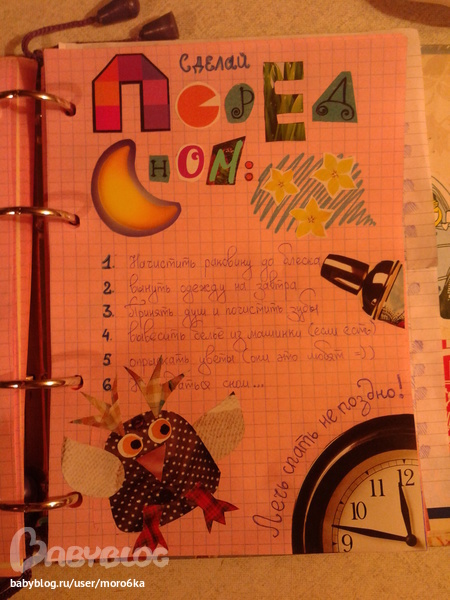 сделай
ПЕРЕД
сном:
1. Начистить раковину до блеска
2 вынуть одежду на завтра
3. Принять душ и почистить зубы
4. вывесить бельё из машинки (если есть)
5 опрыскать цветы (они это любят =))
6 сном...
Лечь спать не поздно!
12
11
10
9
BABYBLOG
babyblog.ru/user/moro6ka